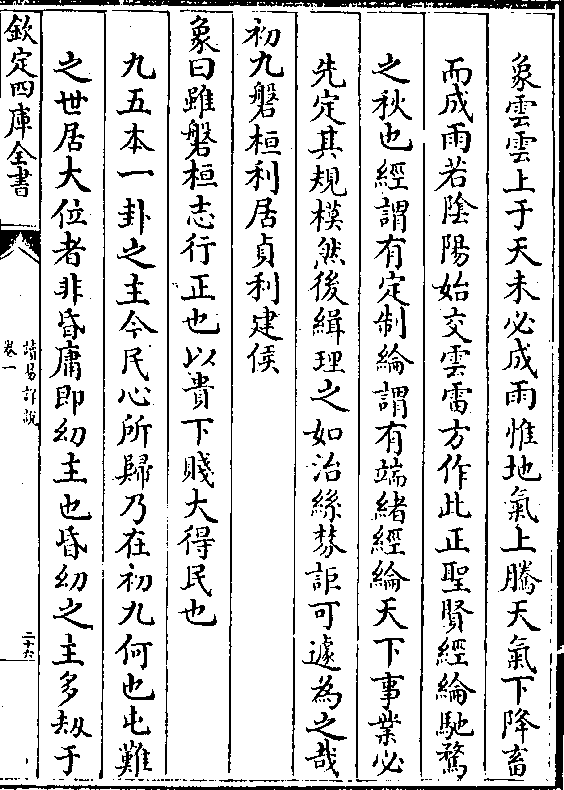 象雲雲上于天未必成雨惟地氣上騰天氣下降畜
而成雨若陰陽始交雲雷方作此正聖賢經綸馳騖
之秋也經謂有定制綸謂有端緒經綸天下事業必
先定其規模然後緝理之如治絲棼詎可遽為之哉
初九磐桓利居貞利建侯
象曰雖磐桓志行正也以貴下賤大得民也
九五本一卦之主今民心所歸乃在初九何也屯難
之世居大位者非昏庸即幼主也昏幼之主多刼于
欽定四庫全書
讀易詳說
卷一
二十六